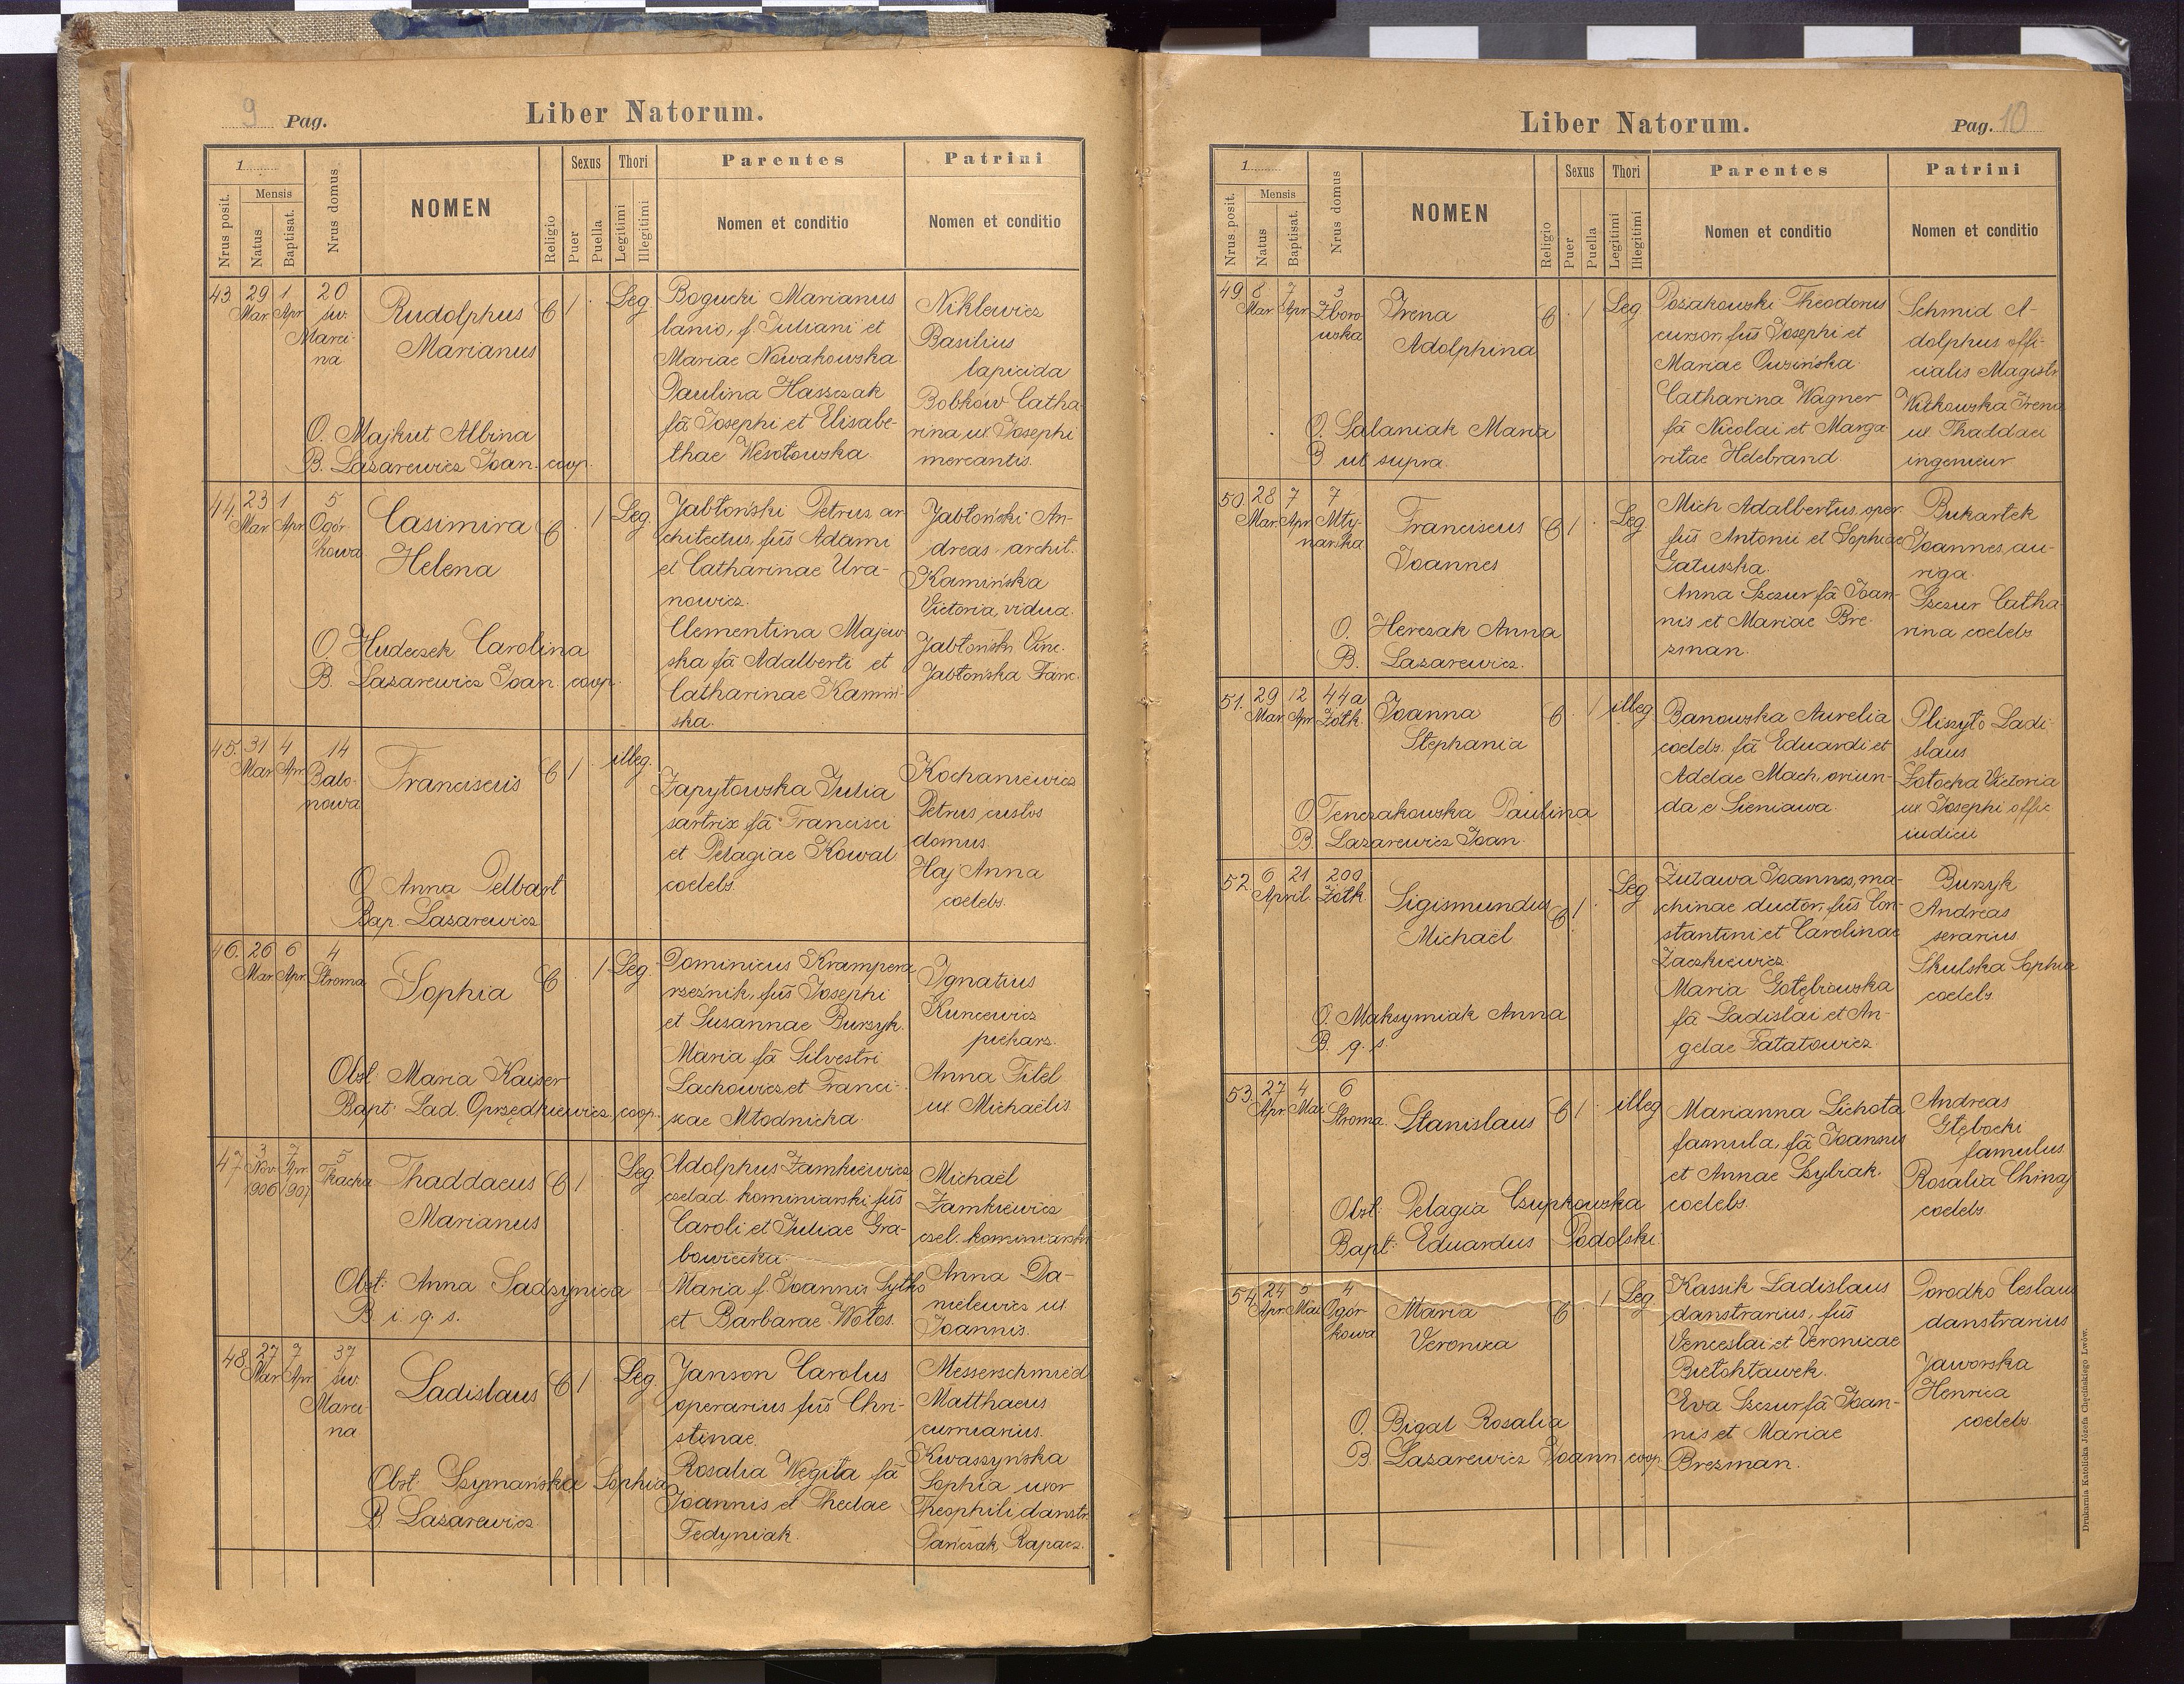 9 Pag.
Liber Natorum.
1
Nrus posit.
Mensis
Natus
Baptisat.
Nrus domus
NOMEN
Religio
Sexus
Puer
Puella
Thori
Legitimi
Illegitimi
Parentes
Nomen et conditio
Patrini
Nomen et conditio
43 29 Mar 1 Apr 20 św. Marci-
na
Rudolphus
Marianus
C 1 Leg
O. Majkut Albina
B. Lazarewicz Joan. coop.
Bogucki Marianus
lanio, f. Juliani et
Mariae Nowakowska
Paulina Haszczak
fa Josephi et Elisabe-
thae Wesołowska.
Niklewicz
Basilius
lapicida
Bobków Catha-
rina ux. Josephi
mercantis.
44. 23 Mar 1 Apr 5 Ogór-
kowa
Casimira
Helena
C 1 Leg.
O. Hudeczek Carolina
B. Lazarewicz Joan. coop.
Jabłoński Petrus ar-
chitectus, fus Adami
et Catharinae Ura-
nowicz.
Clementina Majew-
ska fa Adalberti et
Catharinae Kamiń-
ska.
Jabłoński An-
dreas archit.
Kamińska
Victoria, vidua.
Jabłoński Vinc.
Jabłońska Franc.
45. 31 Mar 4 Apr 14 Balo-
nowa
Franciscus
C 1 illeg.
O. Anna Pelbart
Bap. Lazarewicz
Zapytowska Julia
sartrix fa Francisci
et Pelagiae Kowal
coelebs.
Kochaniewicz
Petrus custos
domus.
Haj Anna
coelebs.
46. 26 Mar 6 Apr. 4 Stroma
Sophia
C 1 Leg.
Obst. Maria Kaiser
Bapt. Lad. Oprzędkiewicz, coop.
Dominicus Krampera
rzeźnik, fus Josephi
et Susannae Burzyk.
Maria fa Silvestri
Lachowicz et Franci-
scae Młodnicka.
Ignatius
Kuncewicz
piekarz.
Anna Titel
ux. Michaëlis
47 3 Nov 1906 7 Apr 1907 5 Tkacka
Thaddaeus
Marianus
C 1 Leg
Obst: Anna Sadzynica
B. i. q. s.
Adolphus Zamkiewicz
czelad. kominiarski fus
Caroli et Juliae Gra-
bowiecka.
Maria f. Joannis Sytko
et Barbarae Wołos.
Michaël
Zamkiewicz
czel. kominiarski
Anna Da-
nielewicz ux
Joannis.
48. 27 Mar 7 Apr 37 św.
Marci-
na
Ladislaus
C 1 Leg
Obst. Szymańska Sophia
B. Lazarewicz
Janson Carolus
operarius fus Chri-
stinae.
Rosalia Węgita fa
Joannis et Theclae
Fedyniak.
Messerschmied
Matthaeus
Kwaszyńska
Sophia uxor
Theophili danstr.
Pańczak, Rapacz.
Liber Natorum.
Pag. 10
1
Nrus posit.
Mensis
Natus
Baptisat.
Nrus domus
NOMEN
Religio
Sexus
Puer
Puella
Thori
Legitimi
Illegitimi
Parentes
Nomen et conditio
Patrini
Nomen et conditio
49. 8 Mar. 7 Apr. 3 Zboro-
wska
Irena
Adolphina
C 1 Leg
O. Salaniak Maria
B ut supra.
Pozakowski Theodorus
cursor, fus Josephi et
Mariae Ouzińska.
Catharina Wagner
fa Nicolai et Marga-
ritae Helebrand.
Schmid A-
dolphus offi-
cialis Magistr.
Witkowska Irena
ux. Thaddaei
ingenieur
50. 28 Mar. 7 Apr. 7 Mły-
narska
Franciscus
Joannes
C 1 Leg
O. Herczak Anna
B. Lazarewicz.
Mich Adalbertus, oper.
fus Antonii et Sophiae
Gatuszka.
Anna Szczur fa Joan-
nis et Mariae Bre-
zman.
Bukartek
Joannes, au-
riga.
Szczur Catha-
rina coelebs
51. 29 Mar. 12 Apr 44a Żółk.
Joanna
Stephania
C 1 illeg
O. Tenczakowska Paulina
B. Lazarewicz Joan.
Banowska Aurelia
coelebs. fa Eduardi et
Adelae Mach, oriun-
da e Sieniawa.
Pliszyło Ladi-
slaus
Łotocka Victoria
ux. Josephi offic
iudicii
52. 6 21 April. 200 Żółk.
Sigismundus
Michaël
C 1 Leg
O. Maksymiak Anna
B. q. s.
Żuława Joannes, ma-
chinae ductor, fus Con-
stantini et Carolinae
Zaczkiewicz.
Maria Gołębiowska
fa Ladislai et An-
gelae Fatatowicz.
Burzyk
Andreas
serarius
Skulska Sophia
coelebs.
53. 27 Apr. 4 Mai 6 Stroma.
Stanislaus
C 1 illeg
Obst: Pelagia Czupkowska
Bapt: Eduardus Podolski
Marianna Lichota
famula, fa Joannis
et Annae Szybiak.
coelebs.
Andreas
Głębocki
famulus
Rosalia Chinaj
coelebs.
54. 24 Apr 5 Mai 4 Ogór-
kowa
Maria
Veronica
C 1 Leg.
O. Bigal Rosalia
B Lazarewicz Joann. coop.
Kassik Ladislaus
danstrarius, fus
Venceslai et Veronicae
Bietohławek.
Eva Szczur fa Joan-
nis et Mariae
Brezman.
Porodko Ceslaus
danstrarius
Jaworska
Henrica
coelebs.
Drukarnia Katolicka Józefa Chęcińskiego Lwów.